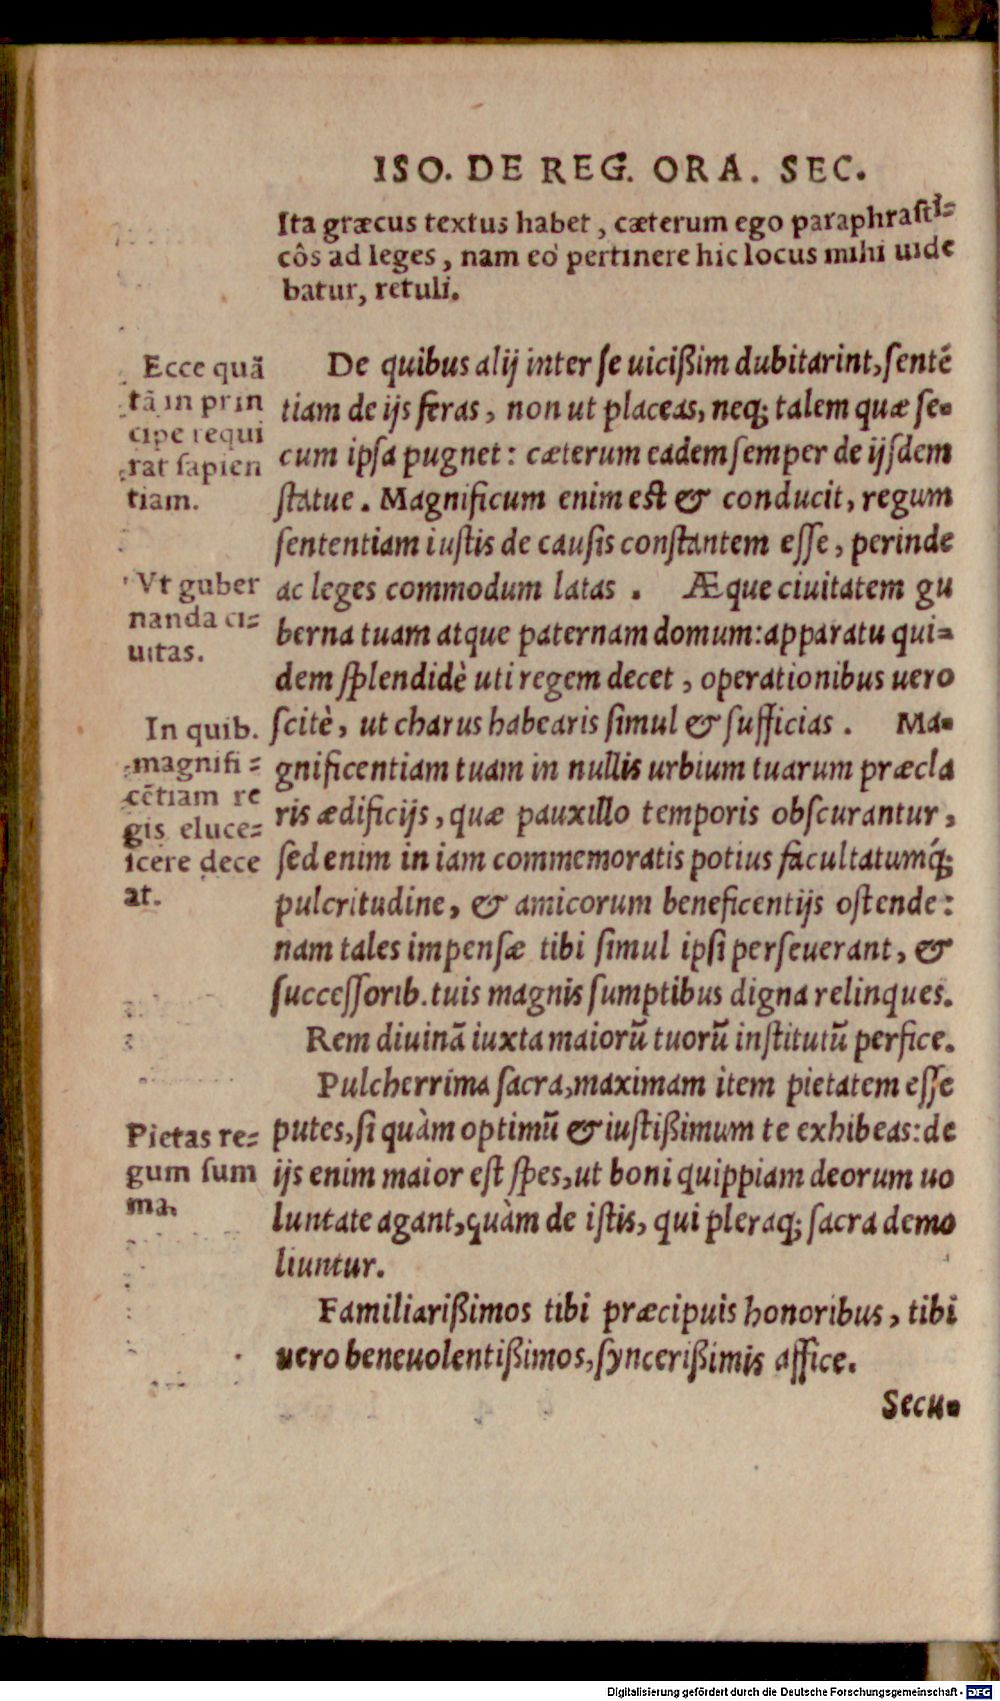 ISO. DE REG. ORA. SEC.
Ita græcus textus habet, cæterum ego paraphrasti=
côs ad leges, nam eò pertinere hic locus mihi uide
batur, retuli.
Ecce quã
tã in prin
cipe requi
rat sapien
tiam.
De quibus alij inter ſe uicißim dubitarint, ſentẽ
tiam de ijs feras, non ut placeas, neq; talem quæ ſe-
cum ipſa pugnet: cæterum eadem ſemper de ijſdem
ſtatue. Magnificum enim est & conducit, regum
ſententiam iuſtis de cauſis conſtantem eſſe, perinde
ac leges commodum latas. Æque ciuitatem gu
berna tuam atque paternam domum: apparatu qui=
dem ſplendidè uti regem decet, operationibus uero
ſcitè, ut charus habearis ſimul & ſufficias. Ma-
gnificentiam tuam in nullis urbium tuarum præcla
ris ædificijs, quæ pauxillo temporis obſcurantur,
ſed enim in iam commemoratis potius facultatumq́;
pulcritudine, & amicorum beneficentijs oſtende:
nam tales impenſæ tibi ſimul ipſi perſeuerant, &
ſucceſſorib. tuis magnis ſumptibus digna relinques.
Vt guber
nanda ci=
uitas.
In quib.
magnifi=
cẽtiam re
gis eluce=
scere dece
at.
Rem diuinã iuxta maiorũ tuorũ inſtitutũ perfice.
Pulcherrima ſacra, maximam item pietatem eſſe
putes, ſi quàm optimũ & iuſtißimum te exhibeas: de
ijs enim maior eſt ſpes, ut boni quippiam deorum uo
luntate agant, quàm de iſtis, qui pleraq; ſacra demo
liuntur.
Pietas re=
gum ſum
ma.
Familiarißimos tibi præcipuis honoribus, tibi
uero beneuolentißimos, ſyncerißimis affice.
Secu-
Digitalisierung gefördert durch die Deutsche Forschungsgemeinschaft - DFG